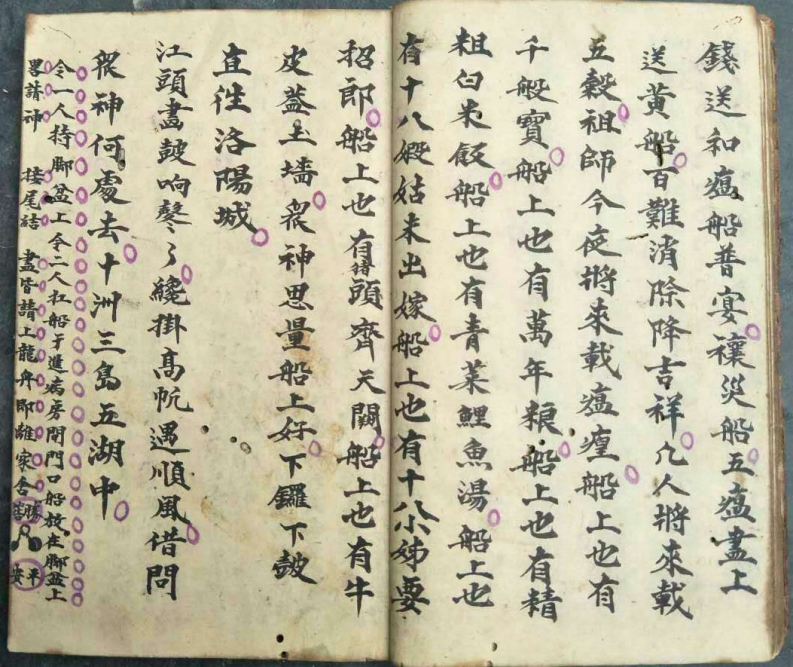 錢送和瘟船普宴禳災船五瘟盡上
送黃船百難消除降吉祥凡人將來載
五穀祖師今夜將來載瘟瘽船上也有
千般寶船上也有萬年粮船上也有精
粗白米飯船上也有青菜鯉魚湯船上也
有十八嫂姑未出嫁船上也有十八小姊要
招郎船上也有猪頭齊天闕船上也有牛
皮蓋土墻眾神思量船上好下鑼下皷
直往洛陽城
江頭畫皷响鼕々纔掛高帆遇順風借問
眾神何處去十洲三島五湖中
令一人持脚盆上令二人扛船于進病房間門口船放在脚盆上
畧請神 接尾結 盡皆請上龍舟即離家舍